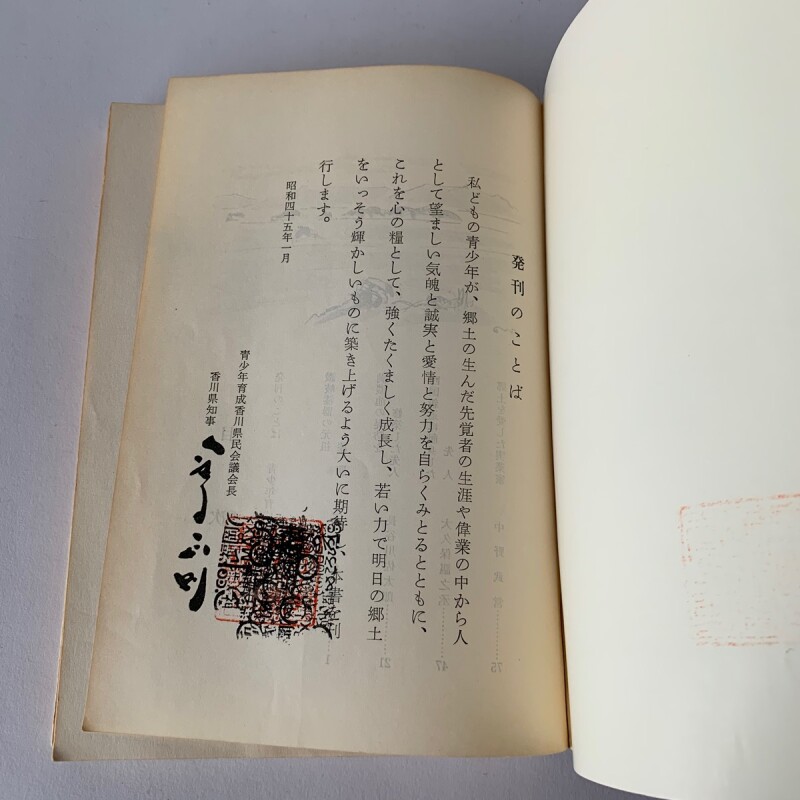 発刊のことば
私どもの青少年が、郷土の生んだ先覚者の生涯や偉業の中から人
として望ましい気魄と誠実と愛情と努力を自らくみとるとともに、
これを心の糧として、強くたくましく成長し、若い力で明日の郷土
をいっそう輝かしいものに築き上げるよう大いに期待し、本書を刊
行します。
昭和四十五年一月
青少年育成香川県民会議会長
香川県知事